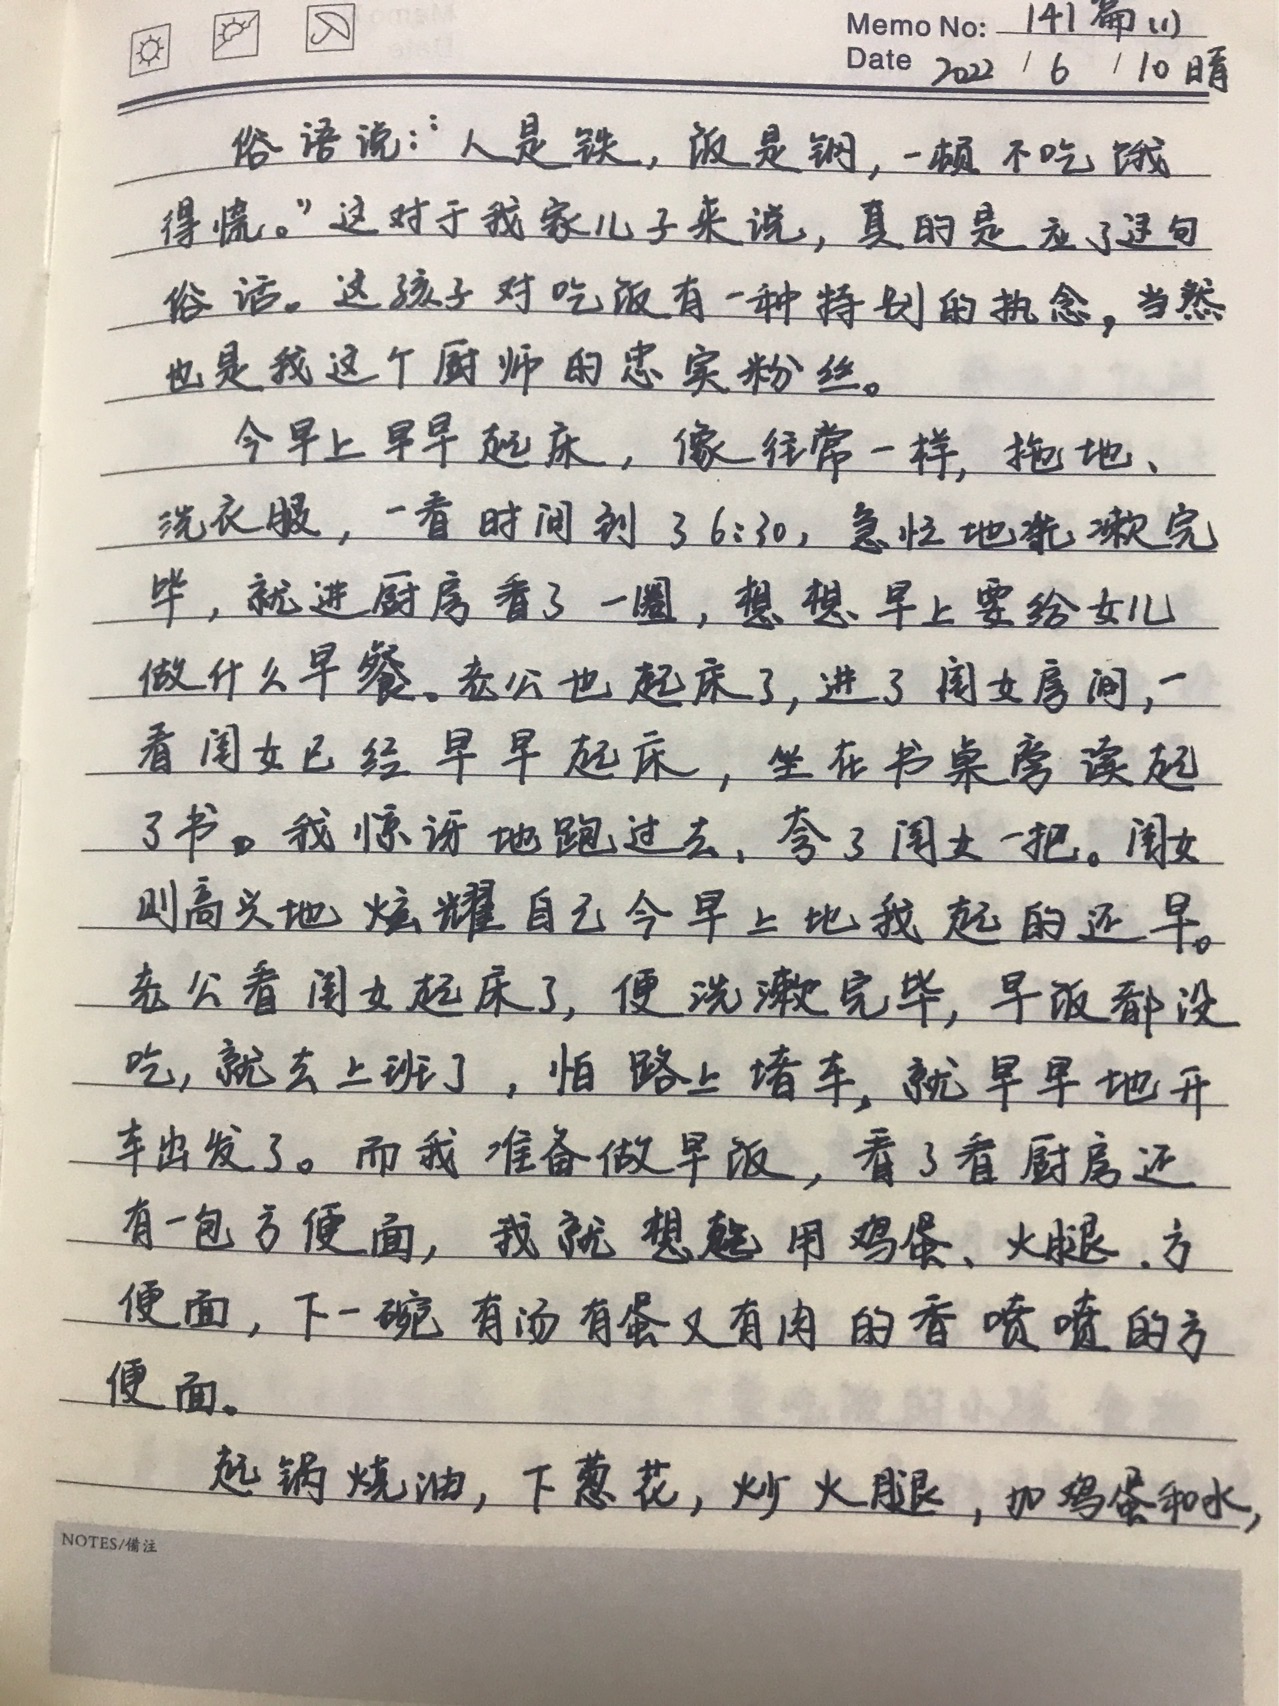 Memo No: 141篇(1)
Date 2022 / 6 / 10 晴
俗语说:“人是铁,饭是钢,一顿不吃饿
得慌。”这对于我家儿子来说,真的是应了这句
俗话。这孩子对吃饭有一种特别的执念,当然
也是我这个厨师的忠实粉丝。
今早上早早起床,像往常一样,拖地、
洗衣服,一看时间到了6:30,急忙地洗漱完
毕,就进厨房看了一圈,想想早上要给女儿
做什么早餐。老公也起床了,进了闺女房间,一
看闺女已经早早起床,坐在书桌旁读起
了书。我惊讶地跑过去,夸了闺女一把。闺女
则高兴地炫耀自己今早上地我起的还早。
老公看闺女起床了,便洗漱完毕,早饭都没
吃,就去上班了,怕路上堵车,就早早地开
车出发了。而我准备做早饭,看了看厨房还
有一包方便面,我就想起用鸡蛋、火腿、方
便面,下一碗有汤有蛋又有肉的香喷喷的方
便面。
起锅烧油,下葱花,炒火腿,加鸡蛋和水,
NOTES/備注